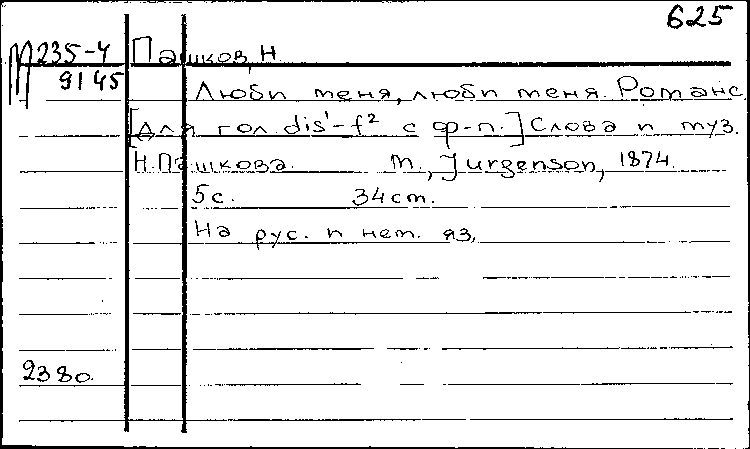 625
М 235-4 Пашков, Н.
9145
Люби меня, люби меня. Романс
[для гол. dis¹-f² с ф-п.] Слова и муз.
Н. Пашкова. М., Jurgenson, 1874.
5с. 34cm.
На рус. и нем. яз.
2380.